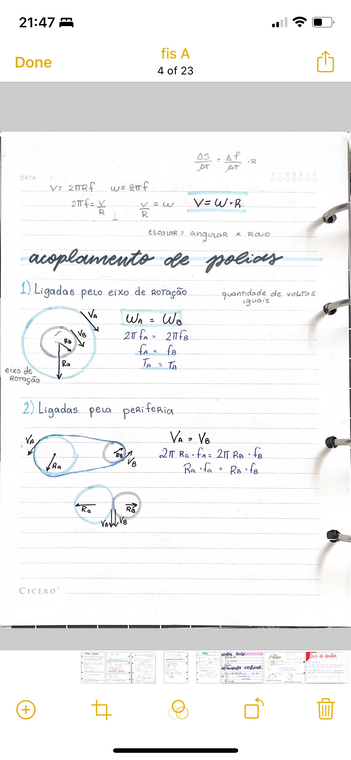 21:47
Done
fis A
4 of 23
ΔS/ΔT = Δf/ΔT · R
DATA
V = 2πRf   W = 2πf
2πf = V/R   V/R = W   V = W · R
escalar = angular x Raio
acoplamento de polias
1) Ligadas pelo eixo de ROTAÇÃO
quantidade de voltas iguais
VA
VB
RB
Ra
eixo de ROTAÇÃO
WA = WB
2πfA = 2πfB
fA = fB
TA = TB
2) Ligadas pela periferia
VA
Ra
RB
VB
VA = VB
2π Ra · fA = 2π RB · fB
Ra · fa = RB · fB
Ra
RB
VA
VB
CICERO